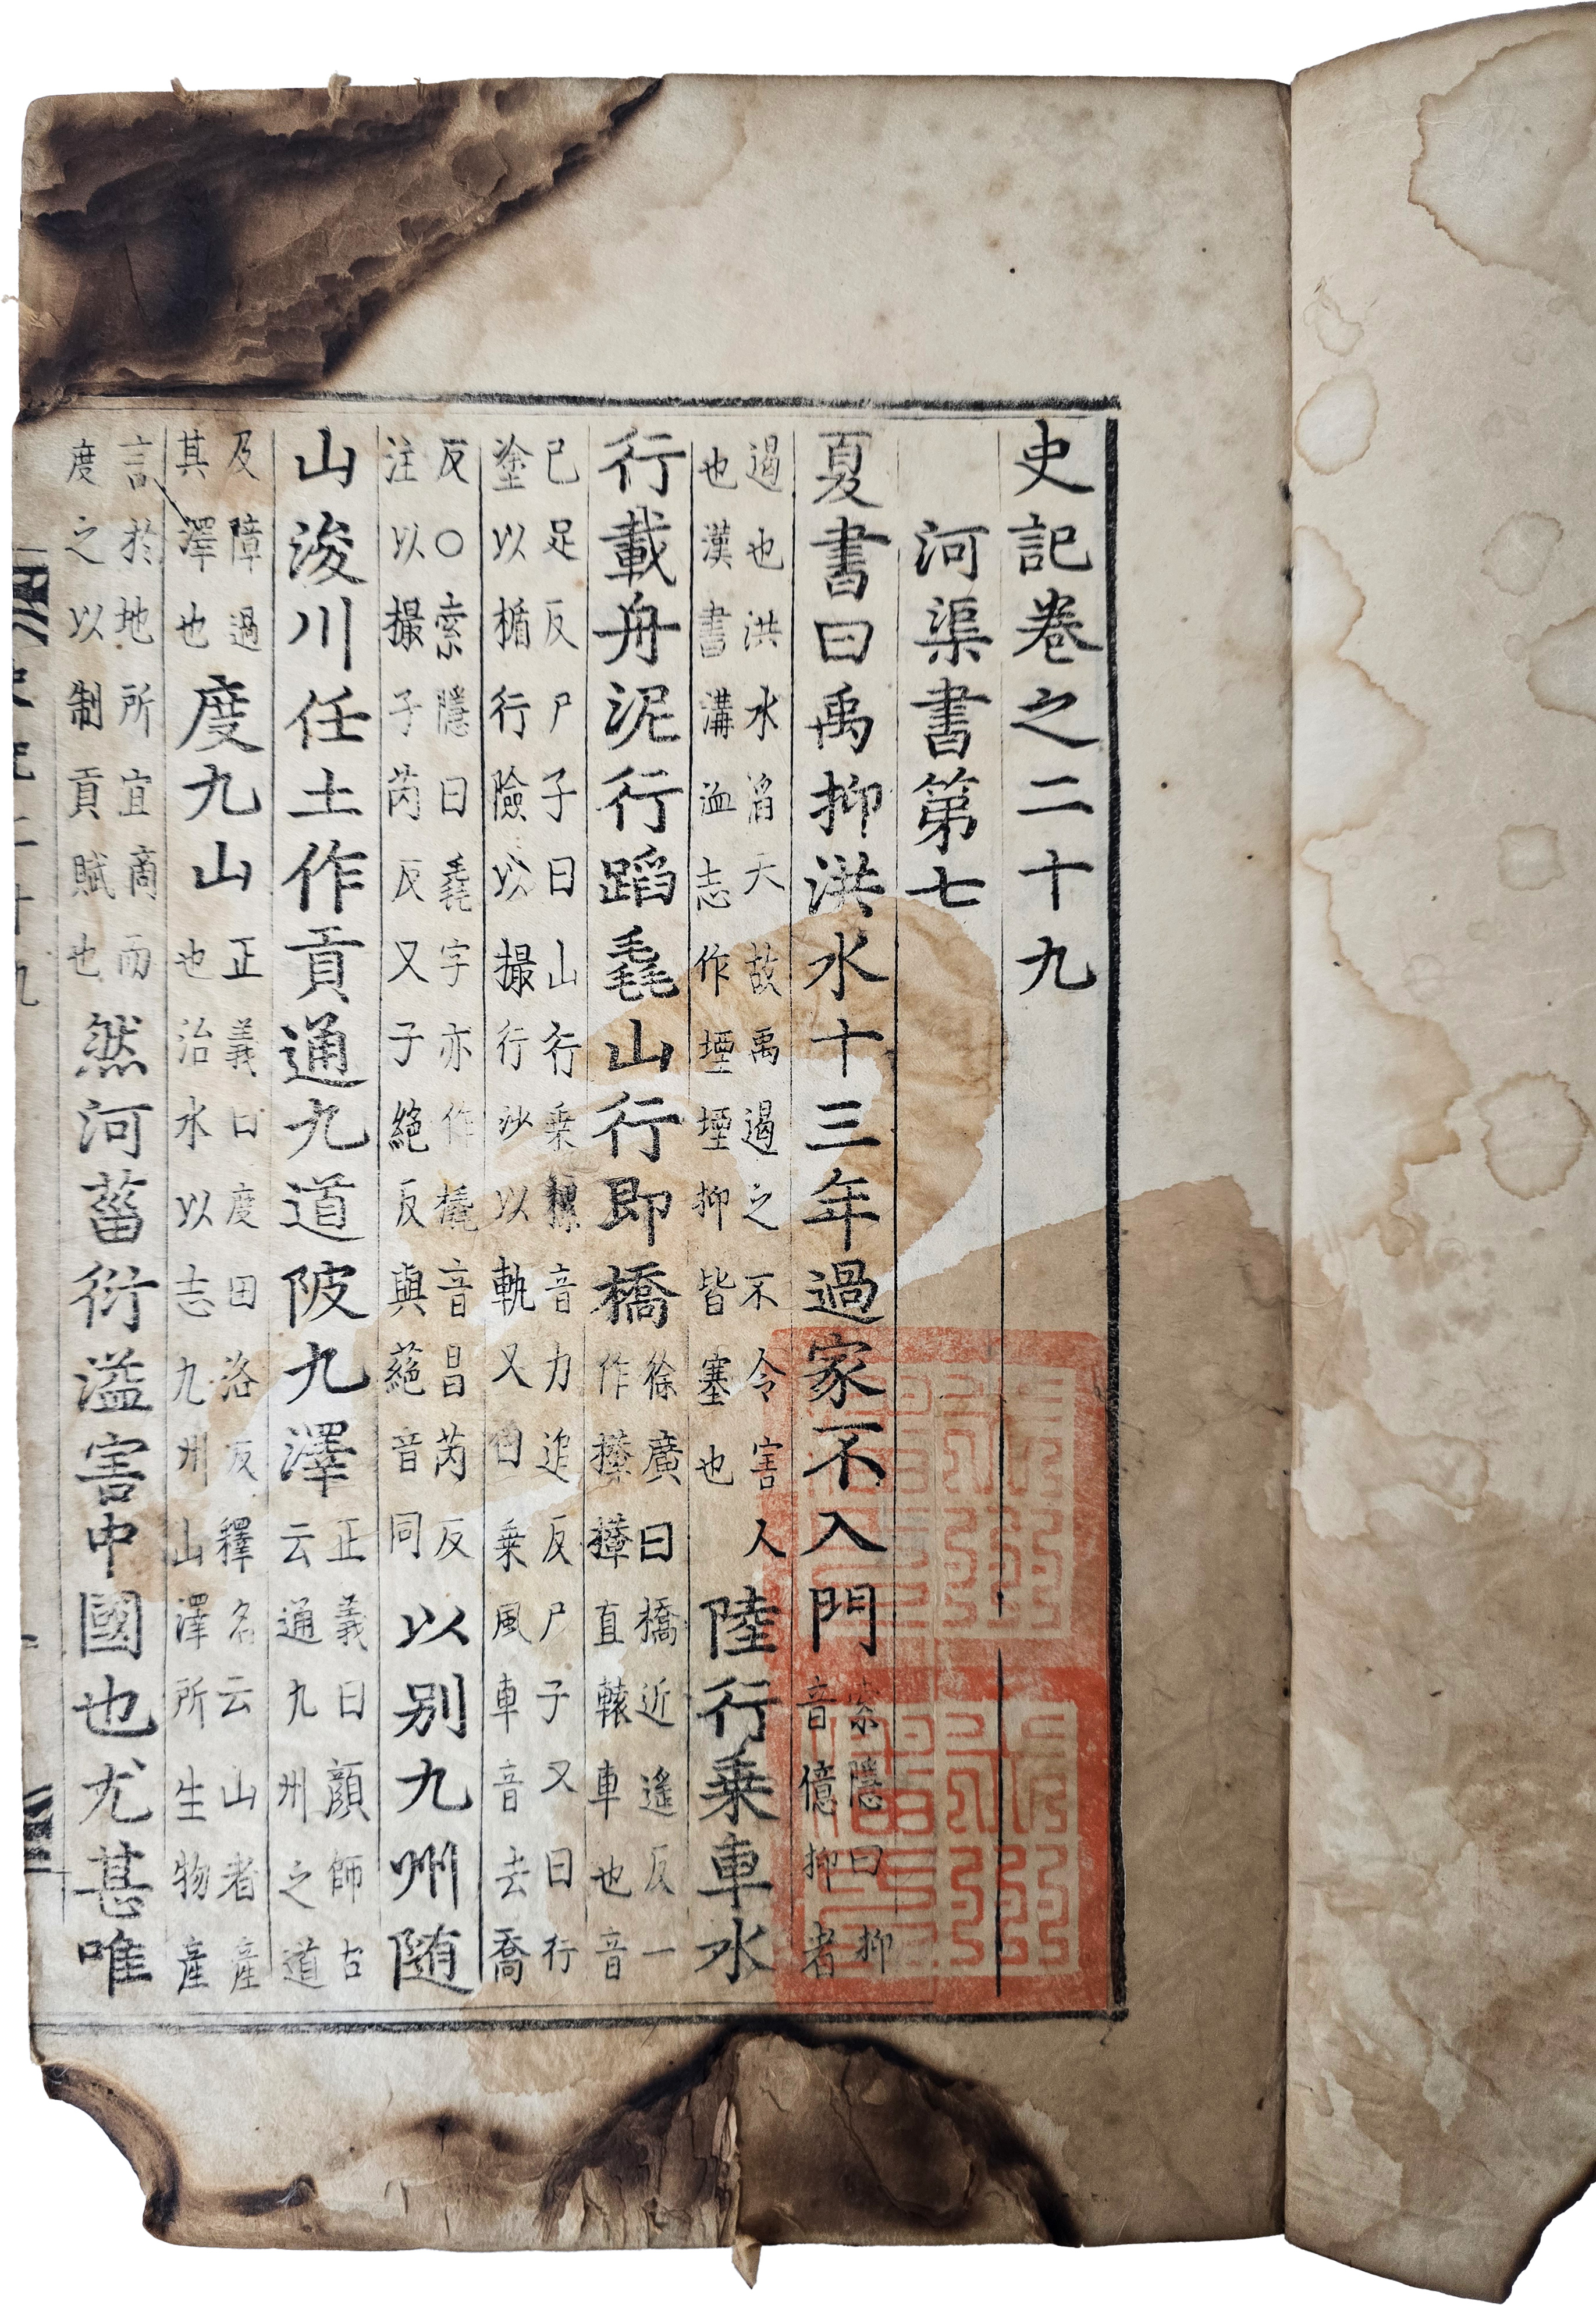 史記卷之二十九
河渠書第七
夏書曰禹抑洪水十三年過家不入門
索隱曰抑
音億抑者
遏也洪水滔天故禹遏之不令害人
也漢書溝洫志作堙堙抑皆塞也
陸行乗車水
行載舟泥行蹈毳山行即橋
徐廣曰橋近遙反一
作直轅車也音
已足反尸子曰山行乗樏音力追反尸子又曰行
塗以楯行險以撮行沙以軌又曰乗風車音去喬
反○索隱曰毳字亦作橇音昌芮反
注以撮子芮反又子絕反與蕝音同
以别九州随
山浚川任土作貢通九道陂九澤
正義曰顔師古
云通九州之道
及障遏
其澤也
度九山
正義曰度田洛反釋名云山者產
也治水以志九州山澤所生物產
言於地所宜商而
度之以制貢賦也
然河菑衍溢害中國也尤甚唯